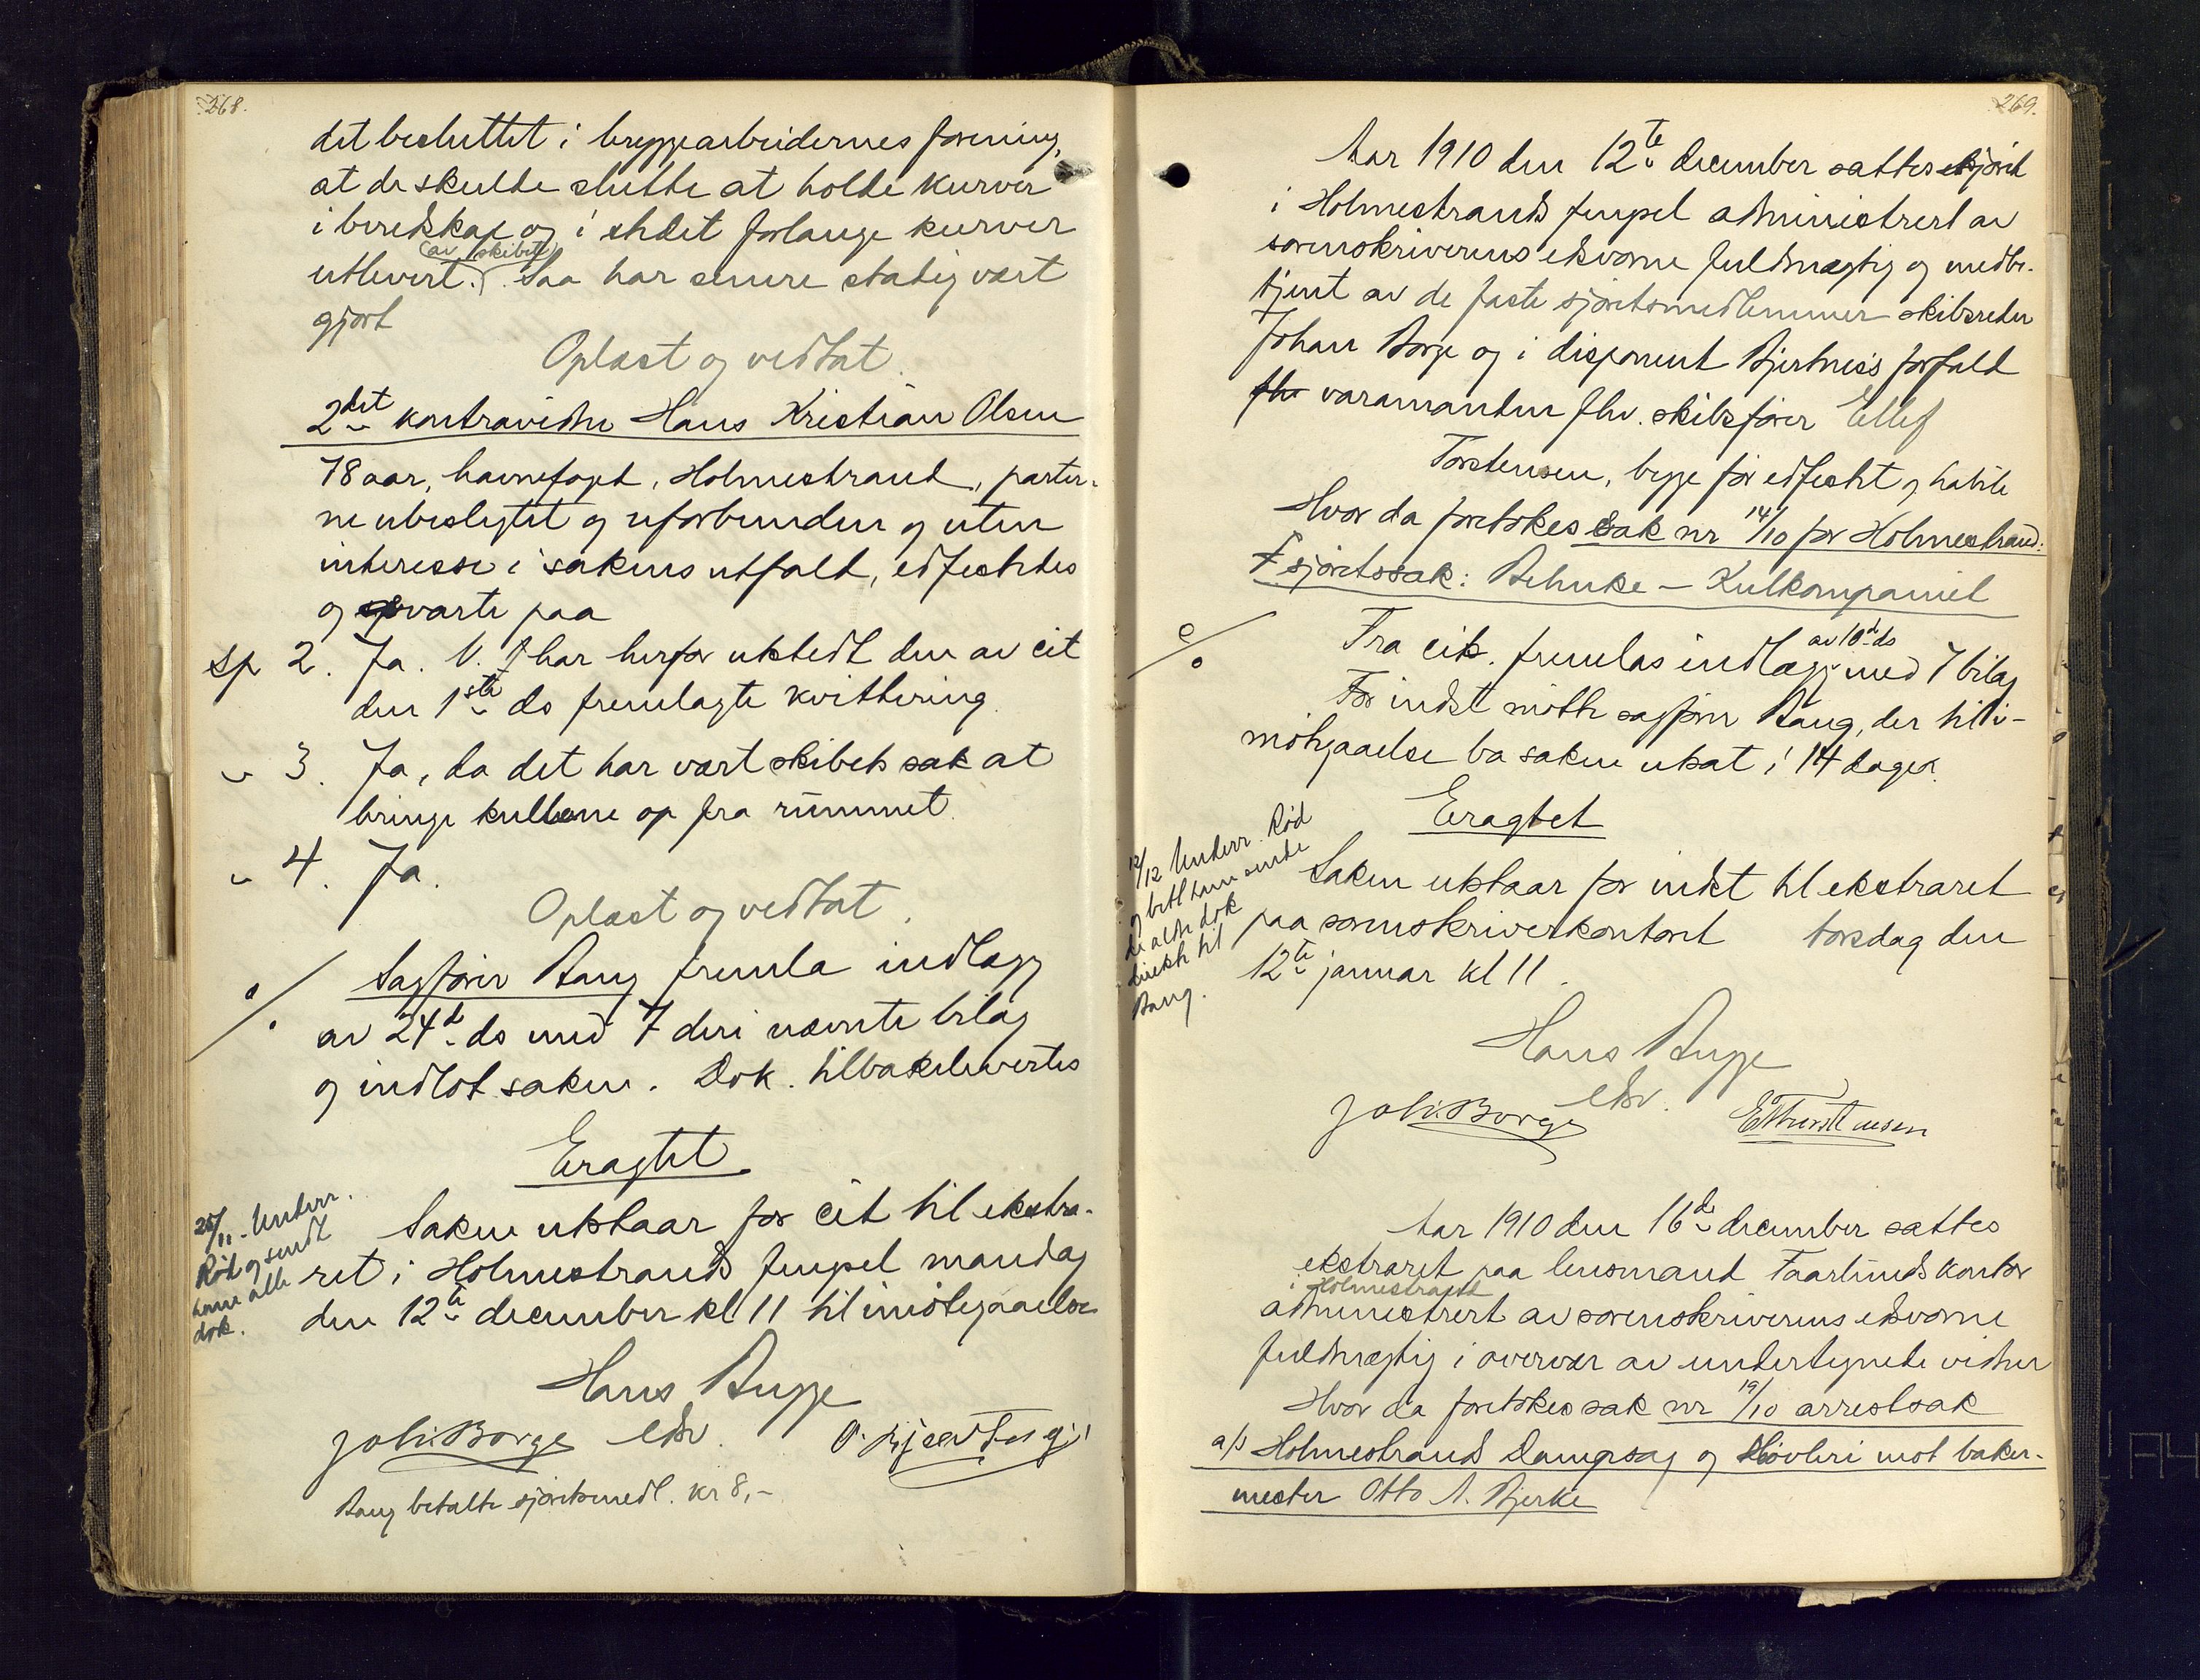 268.
det besluttet i bryggearbeidernes forening,
at de skulde slutte at holde kurver
i beredskap og i stedet forlange kurver
(av skibet)
utlevert. Saa har senere stadig vært
gjort
Oplæst og vedtat.
2det kontravidne Hans Kristian Olsen
78 aar, havnefoged, Holmestrand, parter-
ne ubeslegtet og uforbunden og uten
interesse i sakens utfald, edfestedes
og svarte paa
Sp 2. Ja. V. har herfor utstedt den av cit
den 1ste ds fremlagte kvittering.
" 3. Ja, da det har vært skibets sak at
bringe kullene op fra rummet.
" 4. Ja.
Oplæst og vedtat.
Sagfører Bang fremla indlæg
av 24d ds med 7 deri nævnte bilag
og indlot saken. Dok. tilbakelevertes
Eragtet
25/11. Underr.
Röd og sendt
ham alle
dok.
Saken utstaar for cit til ekstra-
ret i Holmestrands fengsel mandag
den 12te december kl 11 til imøtegaaelse
Hans Bugge
edsv.
Joh. Borge
Bang betalte sjøretsmedl. kr 8,-
269.
Aar 1910 den 12te december sattes sjøret
i Holmestrands fengsel administrert av
sorenskriverens edsvorne fuldmægtig og medbe-
tjent av de faste sjøretsmedlemmer skibsreder
Johan Borge og i disponent Bjertnes's forfald
fhv varamanden fhv. skibsfører Ellef
Torstensen, begge før edfestet og habile
Hvor da foretokes sak nr 14/10 for Holmestrand:
sjøretssak: Behnke - Kulkompaniet
Fra cit. fremlas indlæg av 10d ds med 7 bilag
For indst møtte sagfører Bang, der til i-
møtegaaelse ba saken utsat i 14 dager.
Eragtet
12/12 Underr. Röd
og bedt ham sende
de alle dok
direkte til
Bang.
Saken utstaar for indst til ekstraret
paa sorenskriverkontoret torsdag den
12te januar kl 11.
Hans Bugge
edsv.
Joh. Borge
E Thorstensen
Aar 1910 den 16de december sattes
ekstraret paa lensmand Taarlunds kontor
i Holmestrand
administrert av sorenskriverens edsvorne
fuldmægtig i overvær av undertegnede vidner
Hvor da foretokes sak nr 19/10 arrestsak
a/s Holmestrands Dampsag og Høvleri mot baker-
mester Otto A. Bjerke